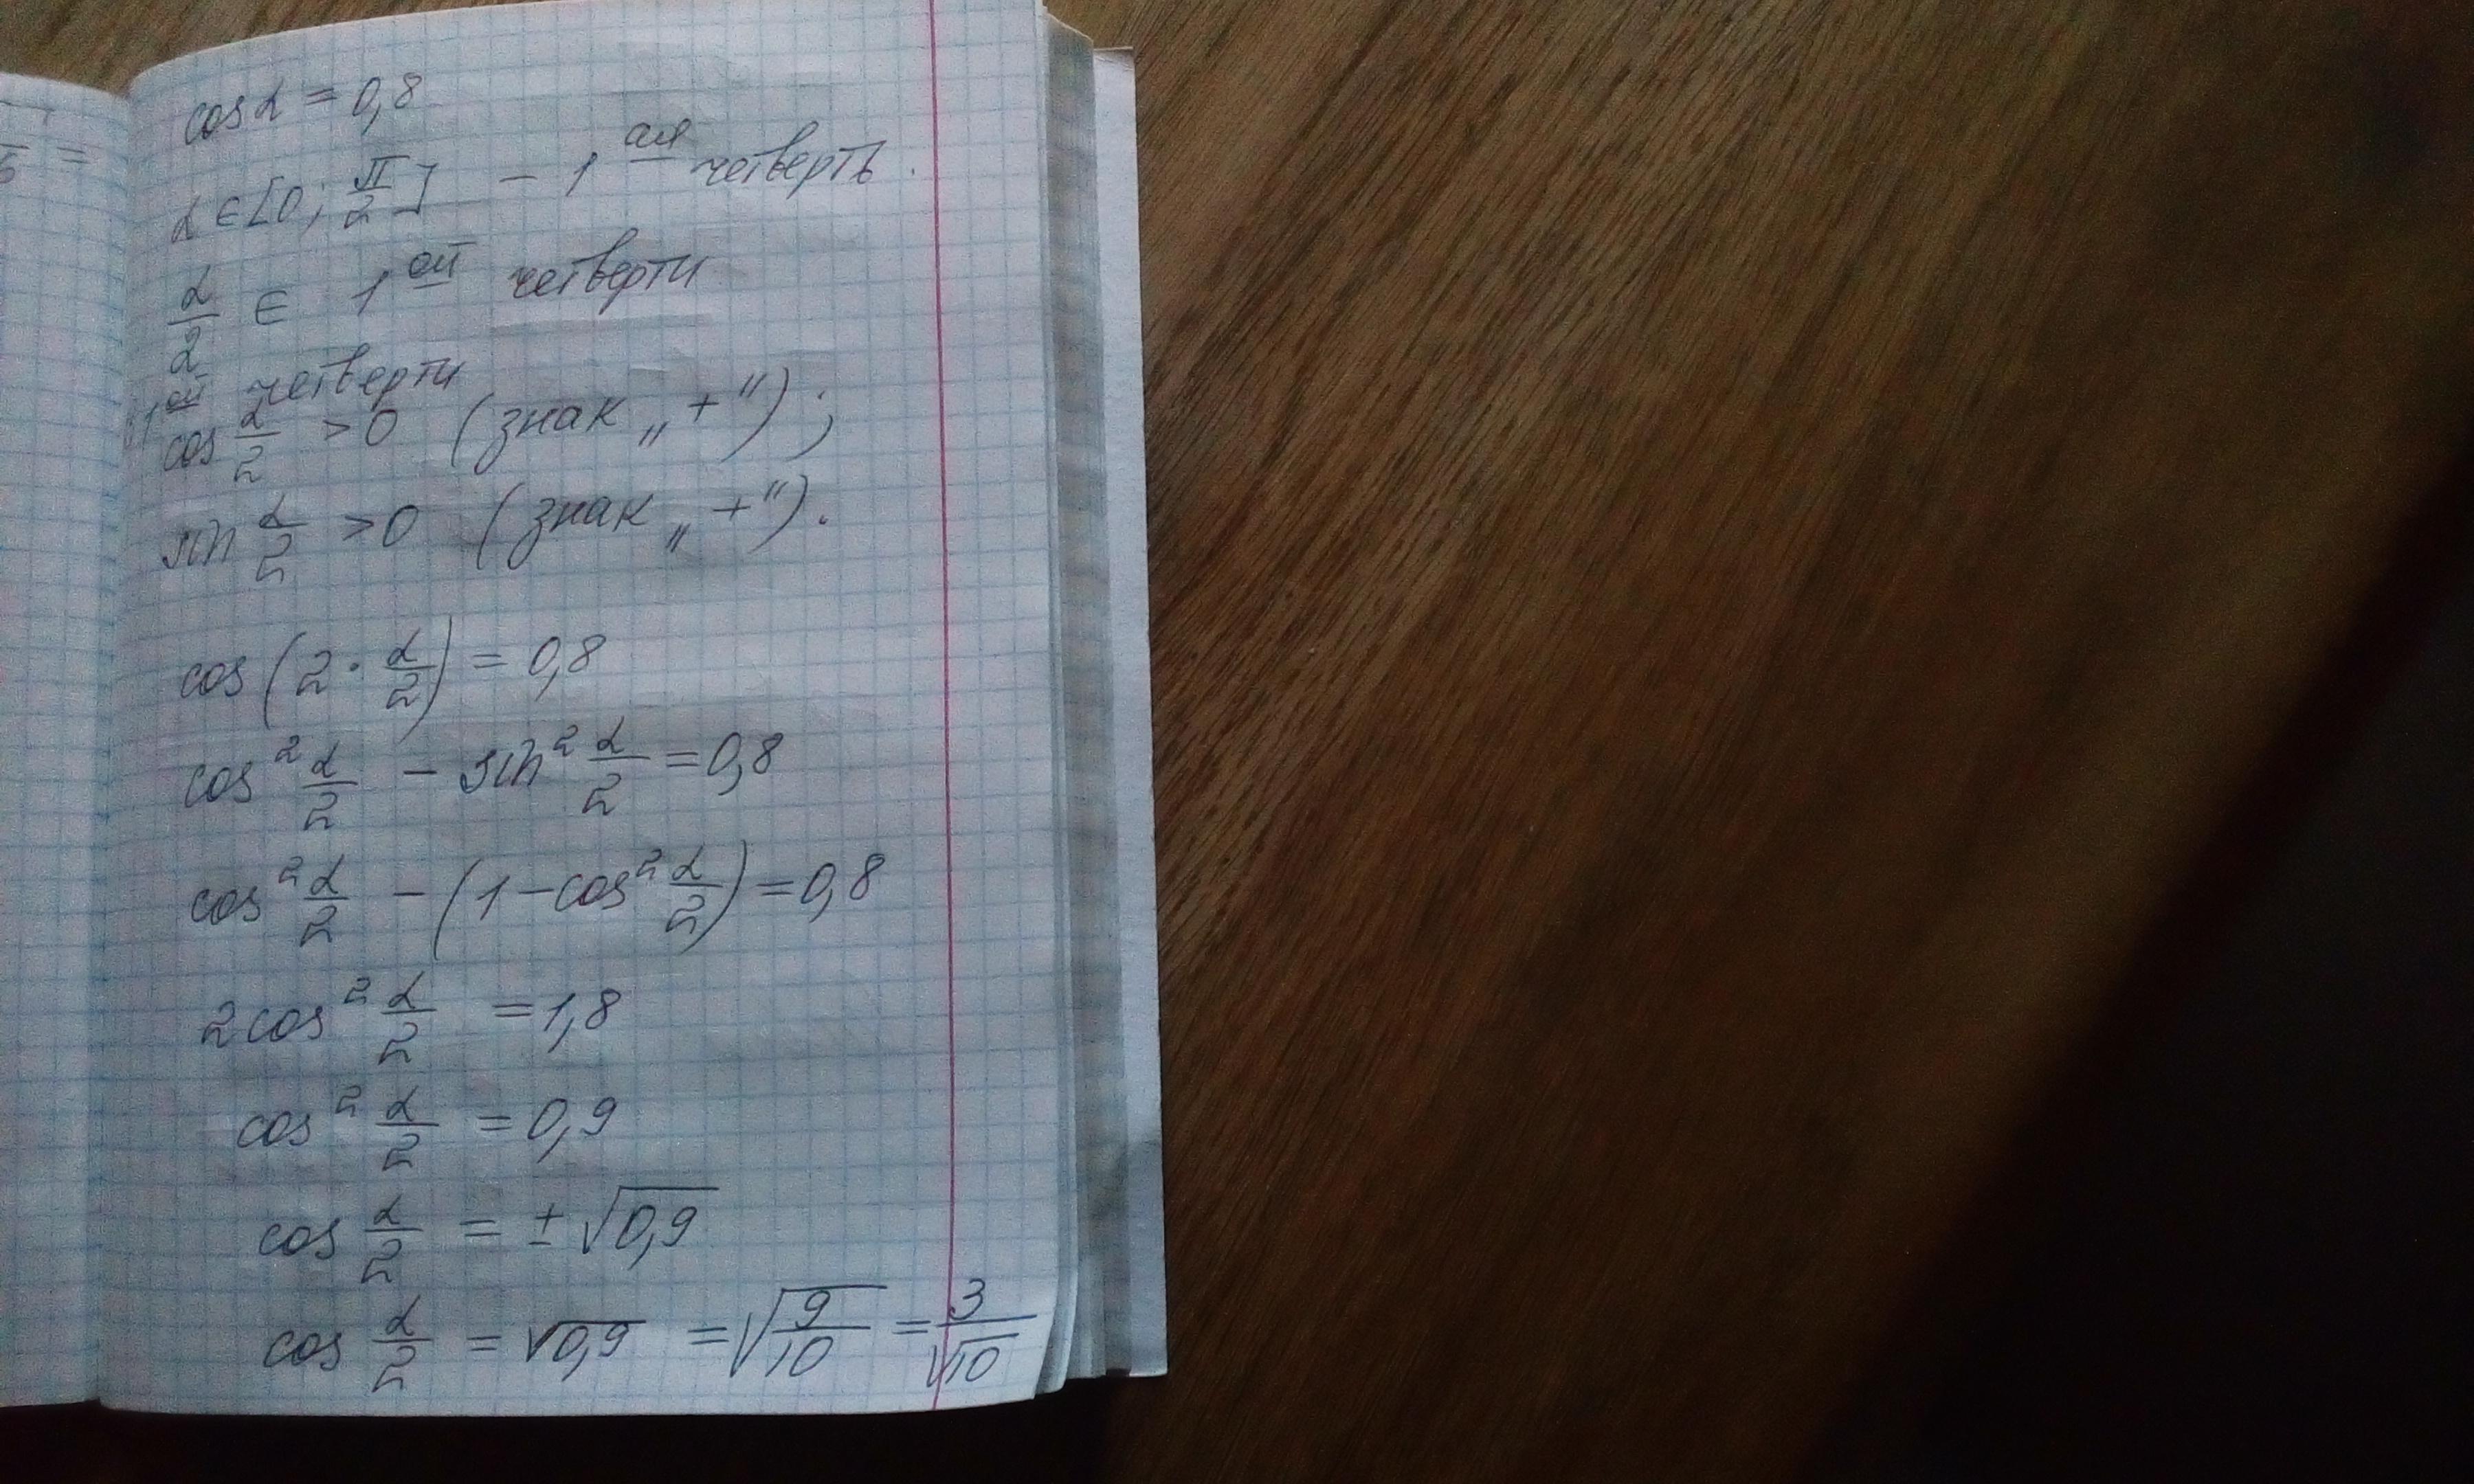 cos α = 0,8
α ∈ [0; π/2] – 1 ая четверть.
α/2 ∈ 1 ой четверти
1 ой четверти
cos α/2 > 0 (знак „+");
sin α/2 > 0 (знак „+").
cos(2 · α/2) = 0,8
cos² α/2 – sin² α/2 = 0,8
cos² α/2 – (1 – cos² α/2) = 0,8
2cos² α/2 = 1,8
cos² α/2 = 0,9
cos α/2 = ± √0,9
cos α/2 = √0,9 = √(9/10) = 3/√10